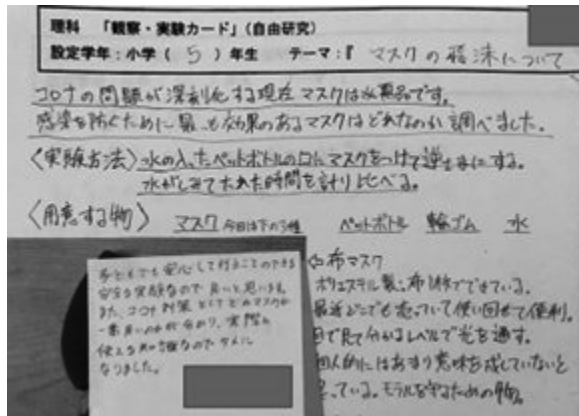 理科 「観察・実験カード」(自由研究)
設定学年:小学( 5 )年生 テーマ:『 マスクの について
コロナの問題が深刻化する現在マスクは必需品です。
感染を防ぐために最も効果のあるマスクはどれなのか調べました。
〈実験方法〉水の入ったペットボトルの口にマスクをつけて逆さまにする。
水がしみてたれた時間を計り比べる。
〈用意する物〉 マスク 今回は下の3種 ペットボトル 輪ゴム 水
布マスク
ポリエステル製。布1枚でできている。
最近どこでも売っていて使い回せて便利。
目で見て分かるレベルで光を通す。
個人的にはあまり意味を成していないと
っている。モラルを守るための物。
子どもでも安心して行うことのできる
安全な実験なので良いと思います。
また、コロナ対策としてどのマスクが
一番良いのかが分かり、実際に
使える知識なのでタメに
なりました。